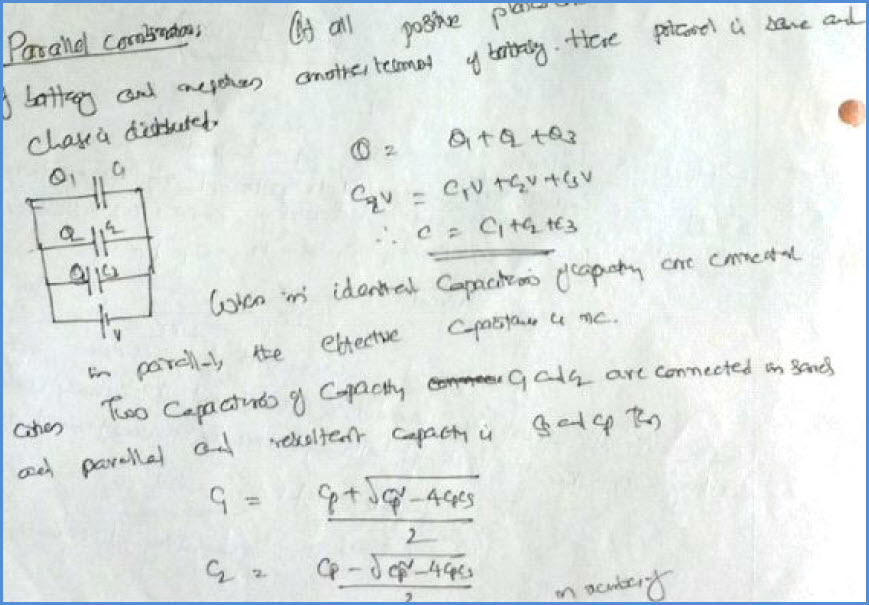 Parallel combination: If all positive
of battery and negative another terminal of battery. Here potential is same and
charge is distributed.
Q = Q1 + Q2 + Q3
CeqV = C1V + C2V + C3V
∴ C = C1 + C2 + C3
Q1 C1
Q2 C2
Q3 C3
V
When 'm' identical capacitors of capacity are connected
in parallel, the effective capacitance is mc.
when Two capacitors of capacity C1 and C2 are connected in series
and parallel and resultent capacity is Cs and Cp then
C1 = Cp + √Cp² - 4CpCs
2
C2 = Cp - √Cp² - 4CpCs
2